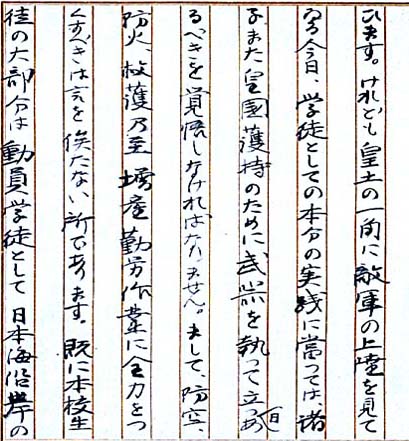 ひます。けれども皇土の一角に敵軍の上陸を見て
ゐる今日、学徒としての本分の実践に当っては、諸
子また皇國護持のために武器を執って立つ日あ
るべきを覚悟しなければなりません。まして、防空、
防火、救護乃至増産勤労作業に全力をつ
くすべきは言を俟たない所であります。既に本校生
徒の大部分は動員学徒として日本海沿岸の